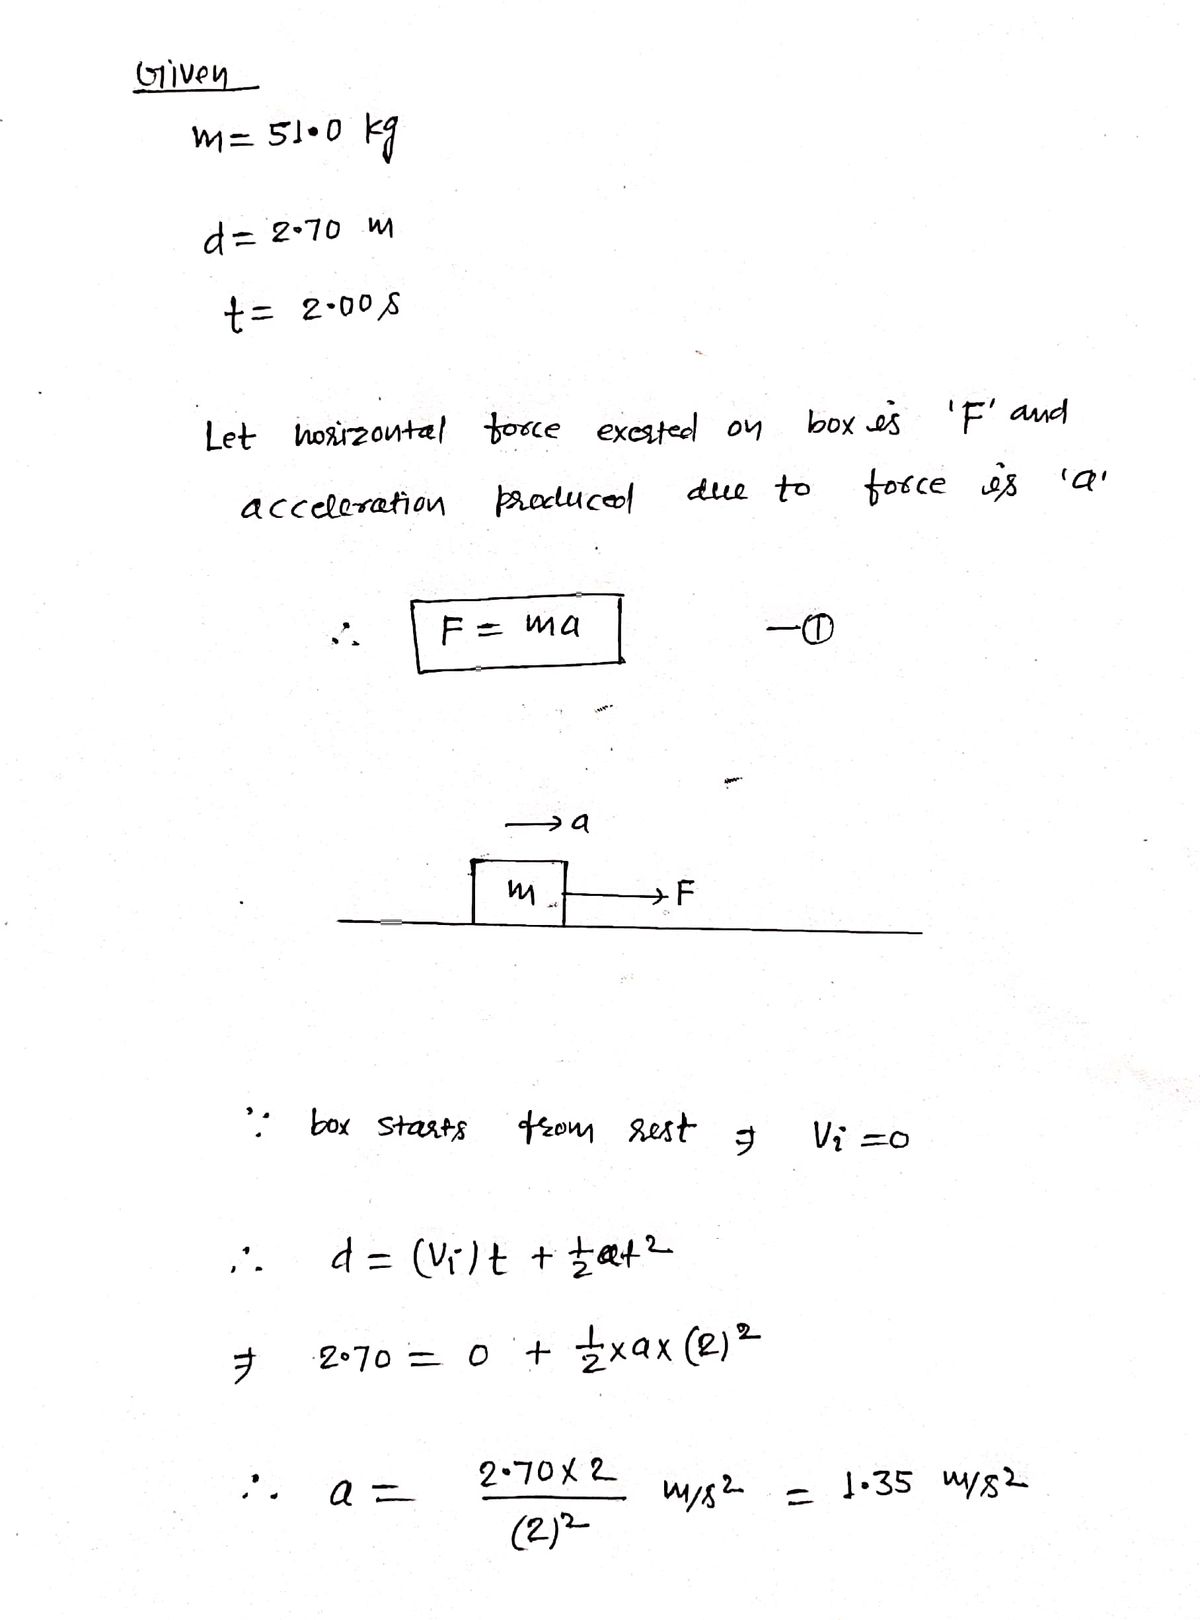 Given
m = 51.0 kg
d = 2.70 m
t = 2.00 s
Let horizontal force exerted on box is 'F' and
acceleration produced due to force is 'a'
∴ F = ma —①
→ a
m → F
∵ box starts from rest ⇒ Vi = 0
∴ d = (Vi)t + 1/2 at²
⇒ 2.70 = 0 + 1/2 × a × (2)²
∴ a = 2.70 × 2 / (2)² m/s² = 1.35 m/s²